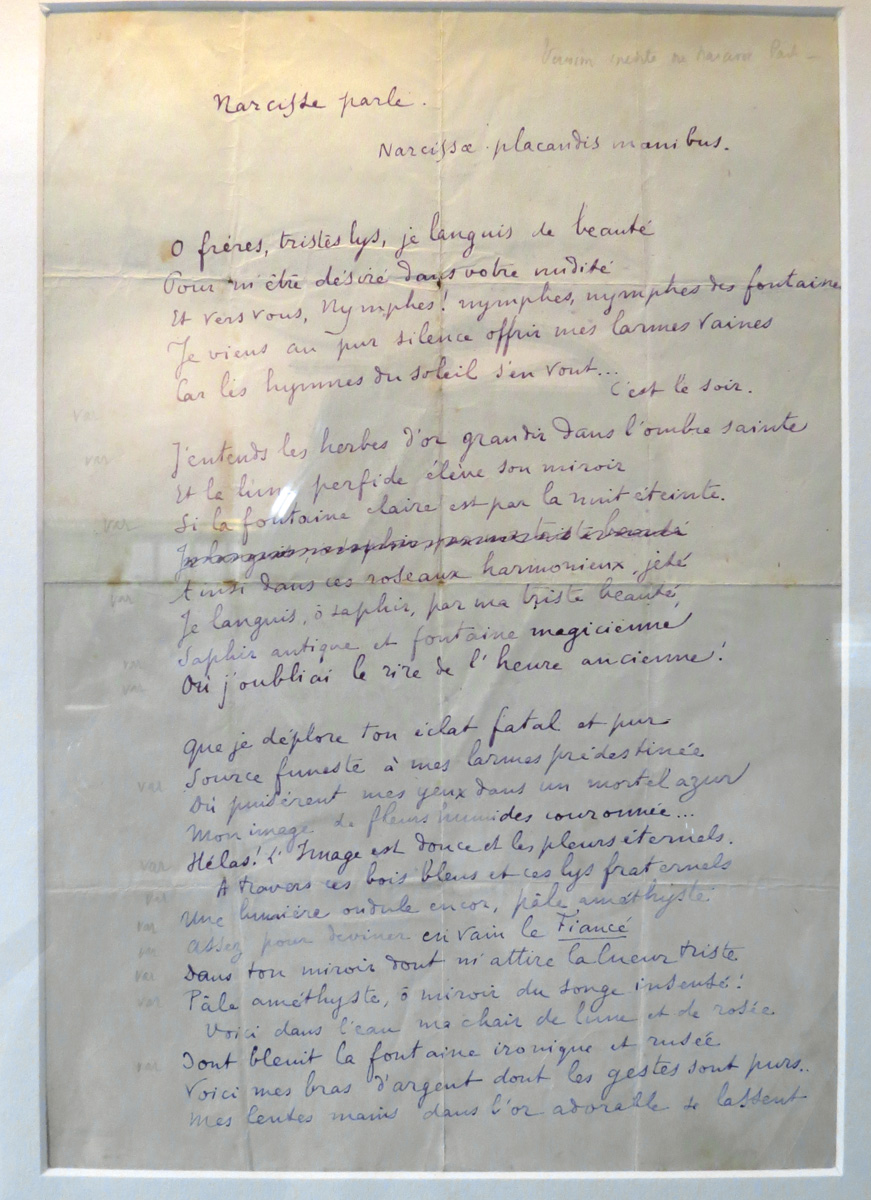 Version inédite de Narcisse Parle
Narcisse parle.
Narcissæ placandis manibus.
O frères, tristes lys, je languis de beauté
Pour m'être désiré dans votre nudité
Et vers vous, Nymphes! nymphes, nymphes des fontaines
Je viens au pur silence offrir mes larmes vaines
Car les hymnes du soleil s'en vont...
C'est le soir.
J'entends les herbes d'or grandir dans l'ombre sainte
Et la lune perfide élève son miroir
Si la fontaine claire est par la nuit éteinte.
Je languis, ô saphir, par ma triste beauté
Ainsi dans ces roseaux harmonieux, jeté
Je languis, ô saphir, par ma triste beauté,
Saphir antique et fontaine magicienne
Où j'oubliai le rire de l'heure ancienne!
Que je déplore ton éclat fatal et pur
Source funeste à mes larmes prédestinée
Où puisèrent mes yeux dans un mortel azur
Mon image de fleurs humides couronnée...
Hélas! l'Image est douce et les pleurs éternels.
A travers ces bois bleus et ces lys fraternels
Une lumière ondule encor, pâle améthyste
Assez pour deviner en vain le Fiancé
Dans ton miroir dont m'attire la lueur triste
Pâle améthyste, ô miroir du songe insensé!
Voici dans l'eau ma chair de lune et de rosée
Dont bleuit la fontaine ironique et rusée
Voici mes bras d'argent dont les gestes sont purs..
Mes lentes mains dans l'or adorable se lassent
var
var
var
var
var
var
var
var
var
var
var
var
var
var